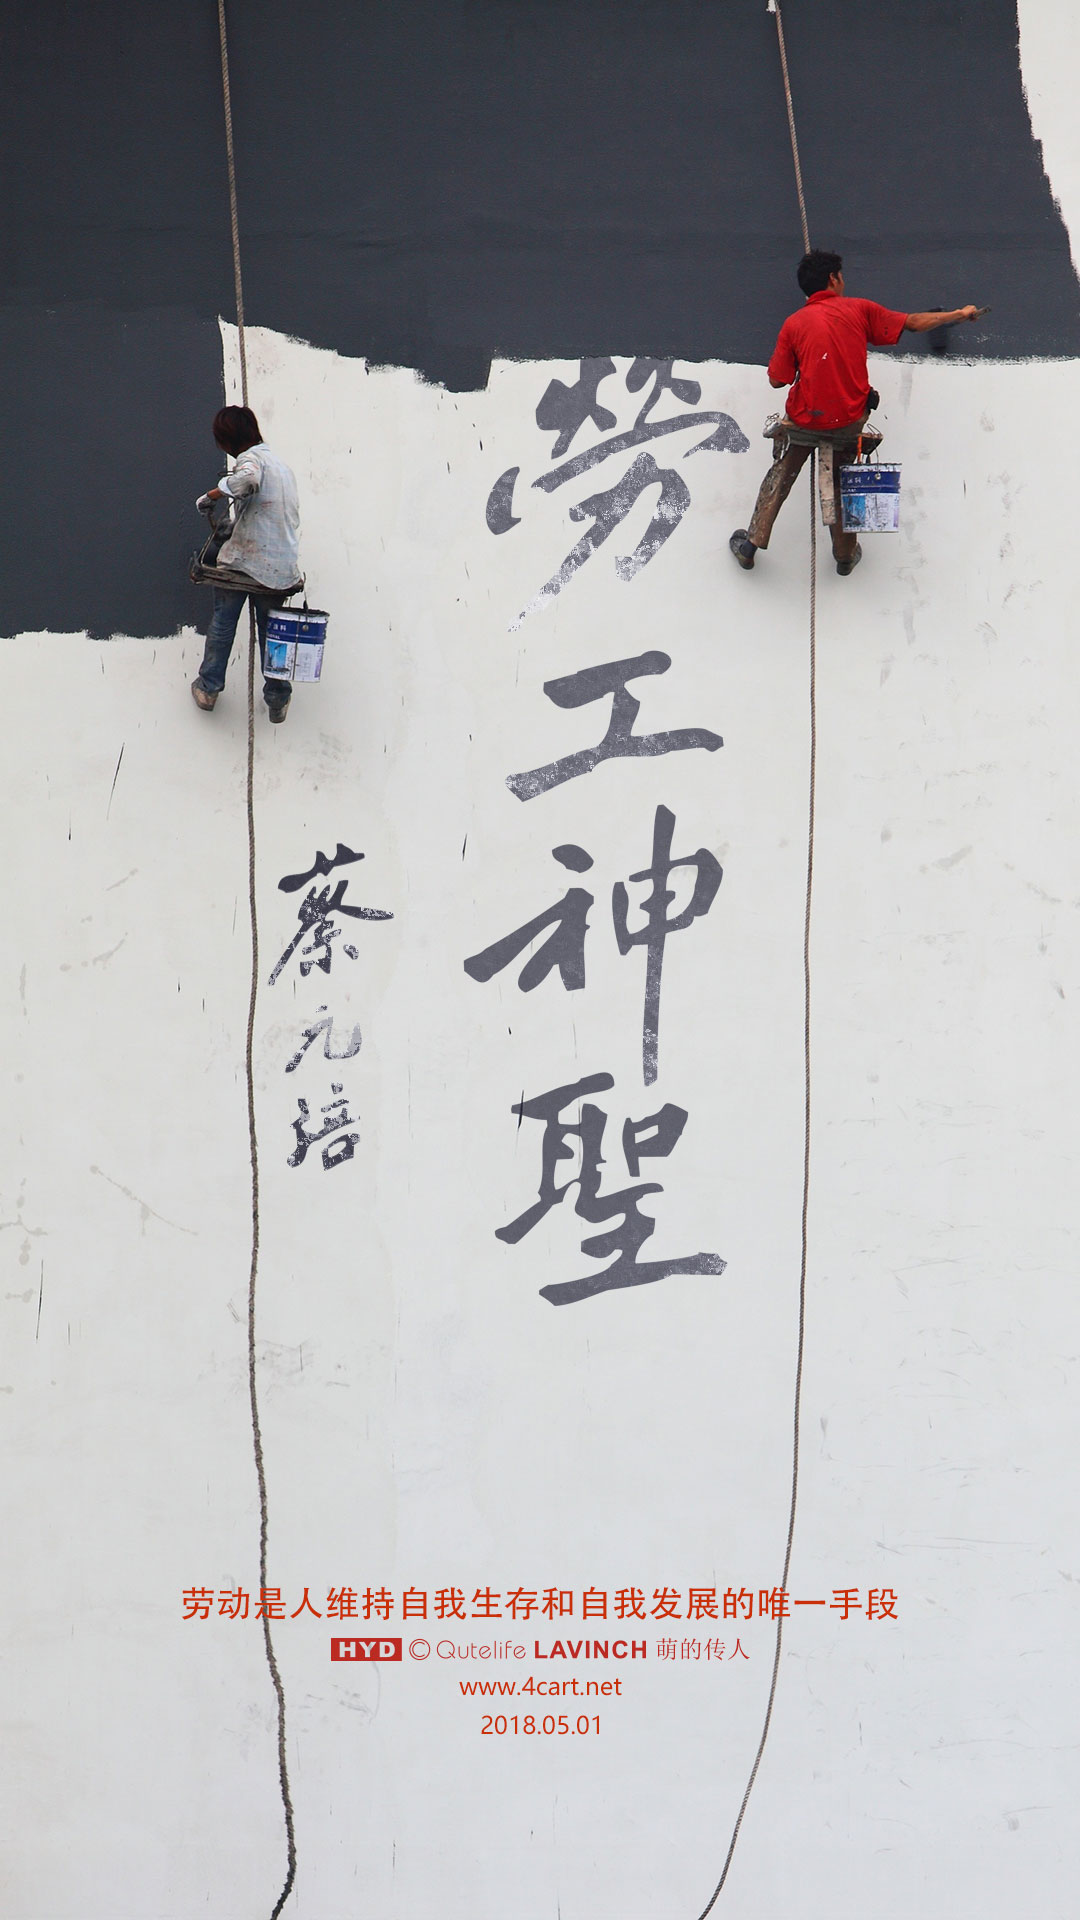 勞工神聖
蔡元培
劳动是人维持自我生存和自我发展的唯一手段
HYD © Qutelife LAVINCH 萌的传人
www.4cart.net
2018.05.01